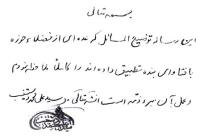 بسمه تعالی
این رساله توضیح المسائل که عده‌ای از فضلاء حوزه
با فتاوای بنده تطبیق داده‌اند را کاملاً ملاحظه نمودم
و عمل به آن مبرء ذمه است انشاءالله تعالی